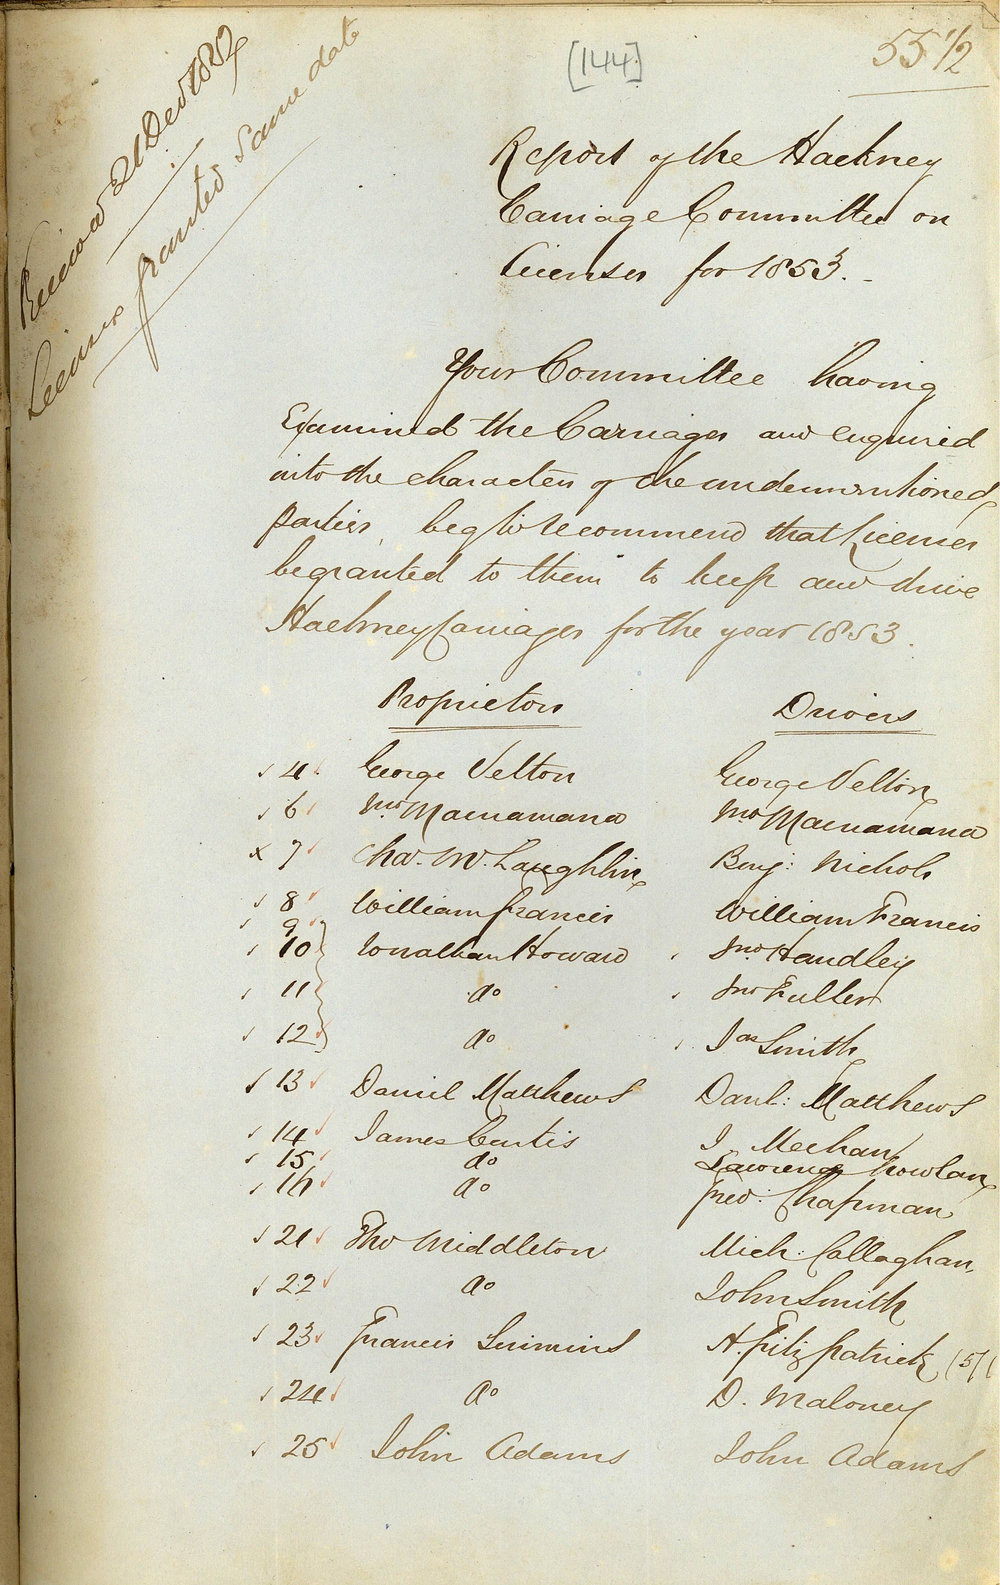 [144]
55 1/2
Received 21 Dec 1852
Licenses granted same date
Report of the Hackney
Carriage Committee on
Licenses for 1853.
Your Committee having
Examined the Carriages and enquired
into the characters of the undermentioned
parties, beg to recommend that Licenses
be granted to them to keep and drive
Hackney Carriages for the year 1853.
Proprietors Drivers
4 George Velton George Velton
6 Mo. Macnamara Mo. Macnamara
x 7 Chas. McLaughlin Benj: Nichols
8 William Francis William Francis
9
10 Jonathan Howard Jno Handley
11 do Jno Fuller
12 do Jas Smith
13 Daniel Matthews Danl: Matthews
14 James Curtis J Meehan
15 do Lawrence Nowlan
16 do Fred: Chapman
21 Tho Middleton Mich: Callaghan
22 do John Smith
23 Francis Simmins H. Fitzpatrick
24 do D. Maloney
25 John Adams John Adams